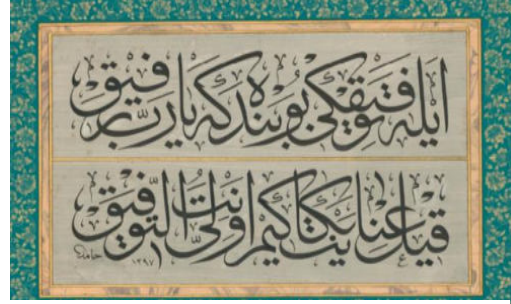 ايله توفيقكى بو بنده كه يا رب رفيق
قيل عنايت بكا كيم انت ولى التوفيق
حامد ١٣٩٧